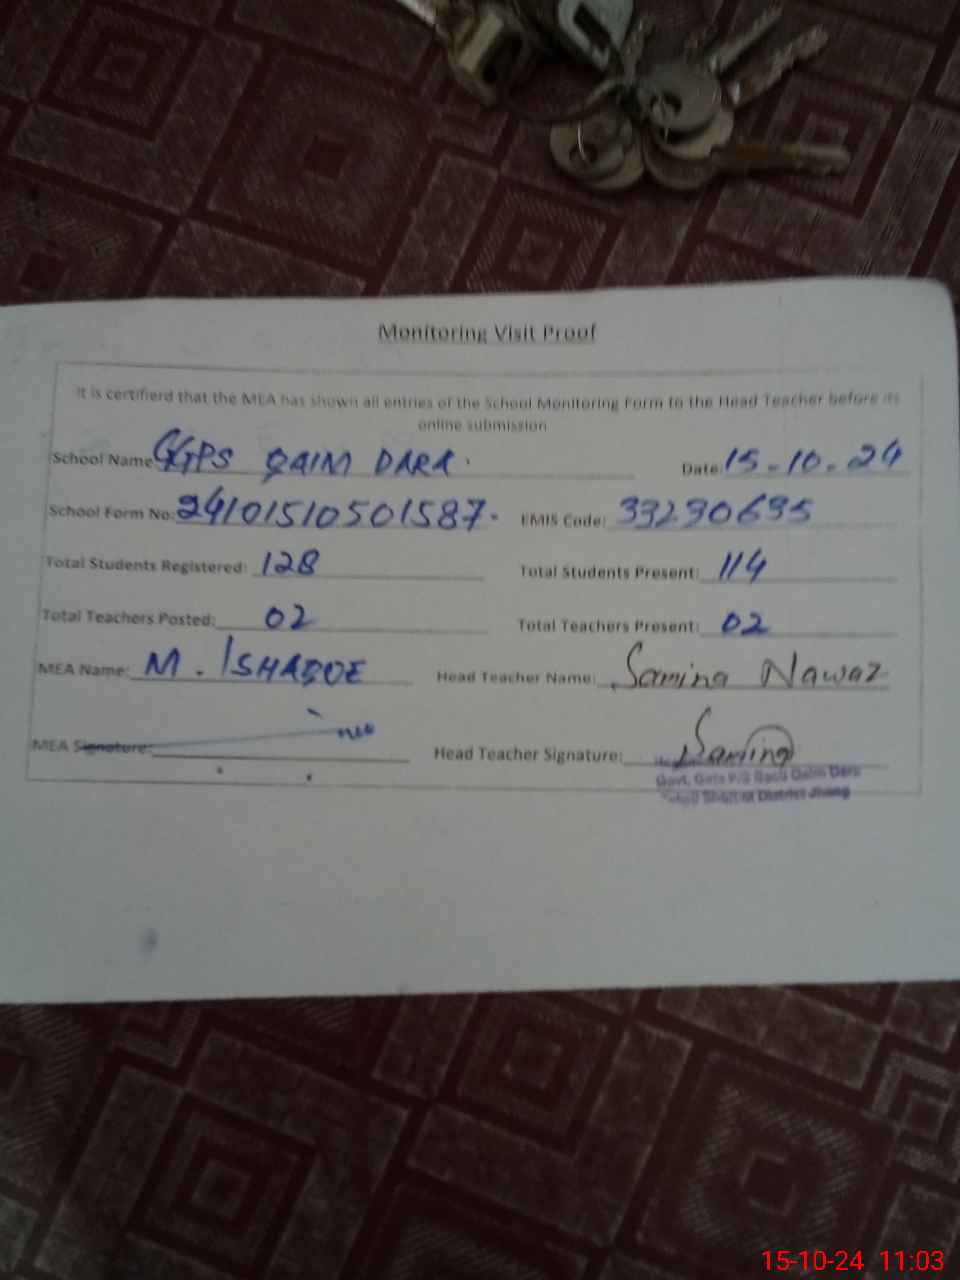 Monitoring Visit Proof
It is certifierd that the MEA has shown all entries of the School Monitoring Form to the Head Teacher before its
online submission
School Name GGPS QAIM DARA. Date: 15-10-24
School Form No: 24101510501587. EMIS Code: 33230695
Total Students Registered: 128 Total Students Present: 114
Total Teachers Posted: 02 Total Teachers Present: 02
MEA Name: M. Head Teacher Name: Samina Nawaz
MEA Signature: Head Teacher Signature: Samina
Govt. Girls P/S Qaim Dara
District Jhang
15-10-24 11:03